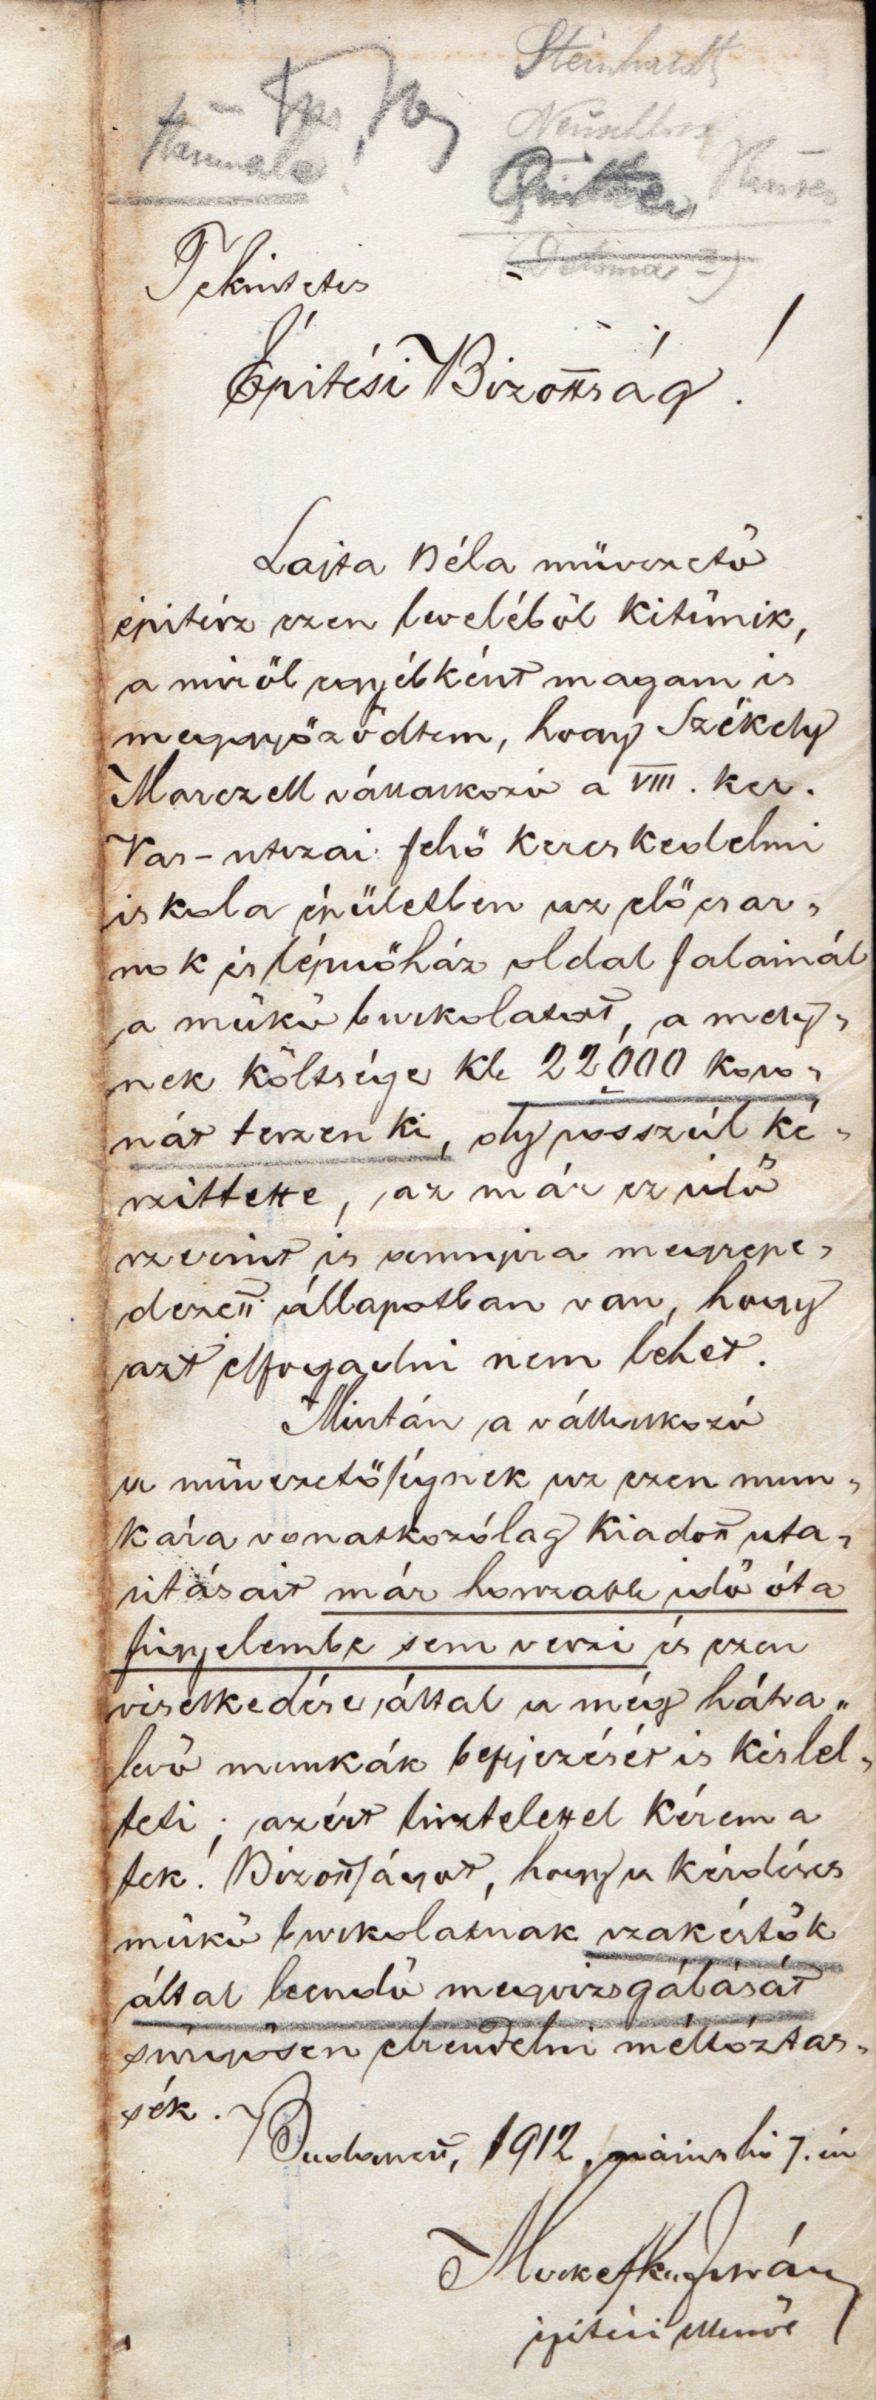 Steinhardt
Neuschloss
Hauser
Tekintetes
Épitési Bizottság!
Lajta Béla müvezető
épitész ezen leveléből kitűnik,
a miről egyébként magam is
meggyőződtem, hogy Székely
Marczell vállalkozó a VIII. ker.
Vas-utczai felső kereskedelmi
iskola épületben az előcsar„
nok és lépcsőház oldal falainál
a műkő burkolatot, a mely„
nek költsége kb 22000 koro„
nát teszen ki, oly rosszúl ké„
szittette, az már ez idő
szerint is annyira megrepe„
dezett állapotban van, hogy
azt elfogadni nem lehet.
Miután a vállalkozó
a művezetőségnek az ezen mun„
kára vonatkozólag kiadott uta„
sitásait már hosszabb idő óta
figyelembe sem veszi és ezen
viselkedése által a még hátra„
levő munkák befejezését is késlel„
teti; azért tisztelettel kérem a
tek. Bizottságot, hogy a kérdéses
műkő burkolatnak szakértők
által leendő megvizsgálását
sürgősen elrendelni méltóztas„
sék.
Budapest, 1912, május hó 7.én
Iván
épitési ellenőr